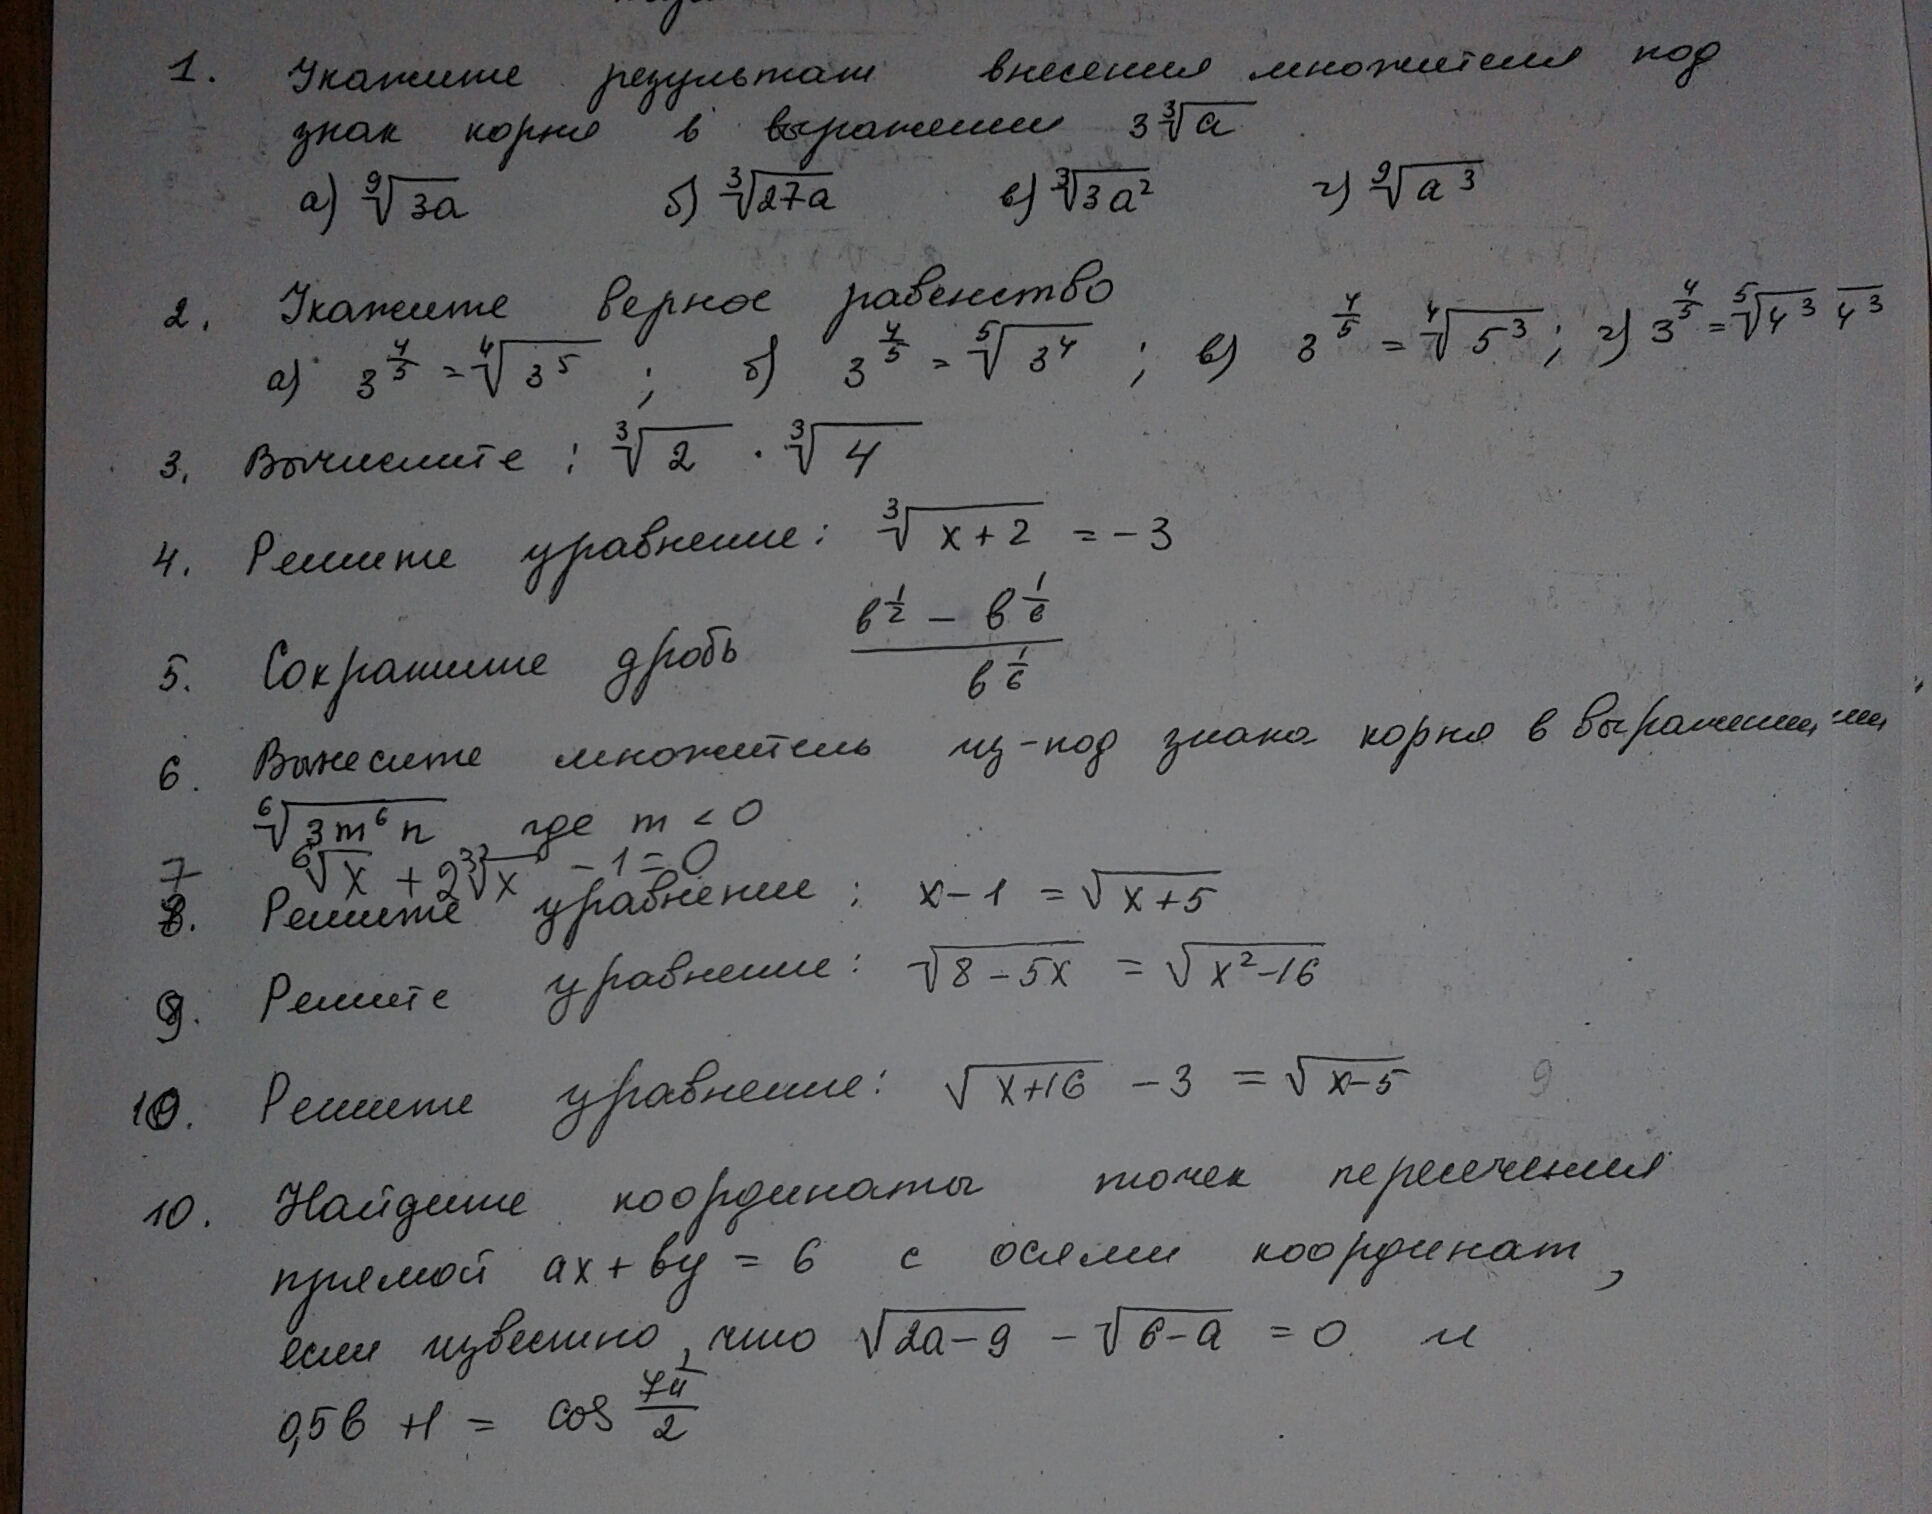 1. Укажите результат внесения множителя под
знак корня в выражении 3∛a
а) ⁹√(3a) б) ∛(27a) в) ∛(3a²) г) ⁹√(a³)
2. Укажите верное равенство
а) 3^(4/5) = ⁴√(3⁵) ; б) 3^(4/5) = ⁵√(3⁴) ; в) 3^(4/5) = ⁴√(5³) ; г) 3^(4/5) = ⁵√(4³) 4³
3. Вычислите : ∛2 · ∛4
4. Решите уравнение: ∛(x+2) = -3
5. Сократите дробь (b^(1/2) - b^(1/6)) / b^(1/6)
6. Вынесите множитель из-под знака корня в выражении
⁶√(3m⁶n) где m < 0
7 ⁶√x + 2∛x - 1 = 0
8. Решите уравнение : x - 1 = √(x+5)
9. Решите уравнение: √(8-5x) = √(x²-16)
10. Решите уравнение: √(x+16) - 3 = √(x-5) 9
10. Найдите координаты точек пересечения
прямой ax + by = 6 с осями координат,
если известно, что √(2a-9) - √(6-a) = 0 и
0,5b + 1 = cos 7π/2